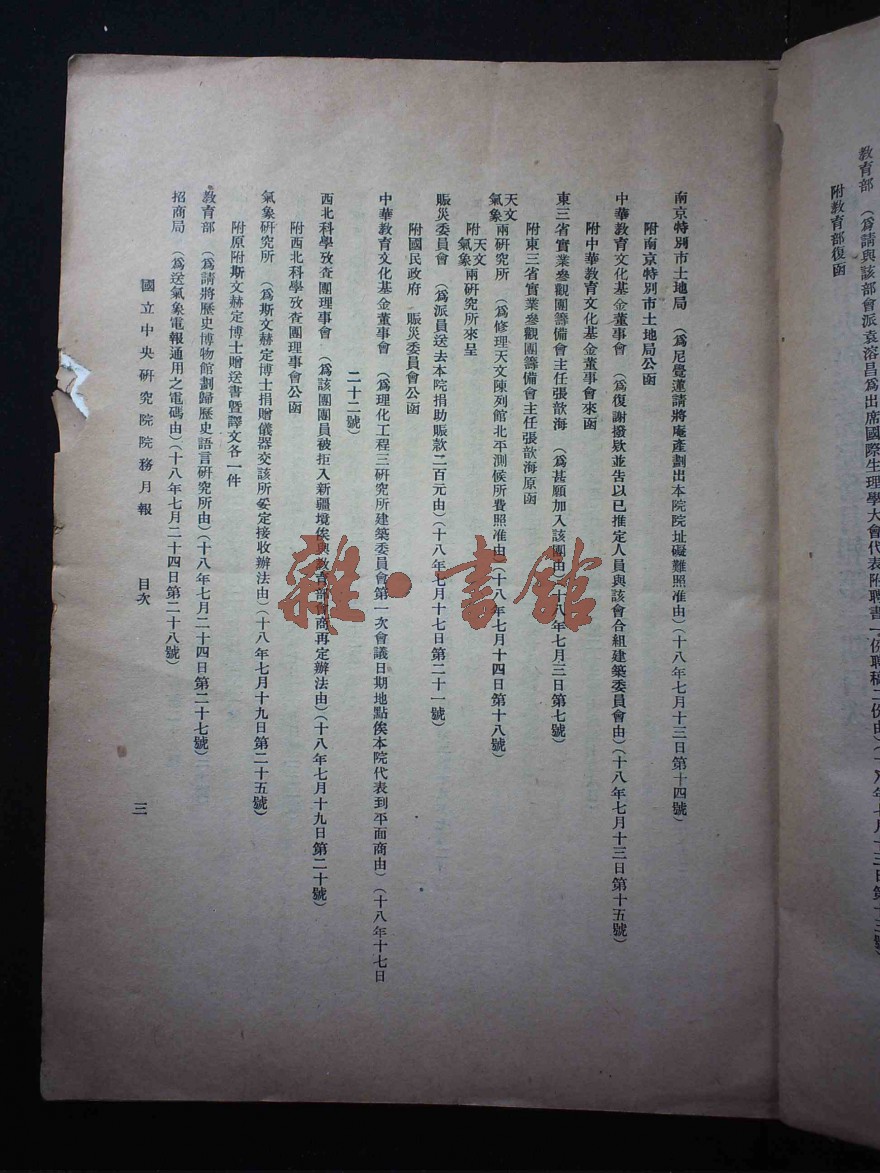 教育部　（爲請與該部會派袁溶昌爲出席國際生理學大會代表附聘書一份聘稿二份由）（十八年七月十三日第十三號）
附教育部復函
南京特別市土地局　（爲尼覺蓮請將庵產劃出本院院址礙難照准由）（十八年七月十三日第十四號）
附南京特別市土地局公函
中華教育文化基金董事會　（爲復謝撥欵並告以已推定人員與該會合組建築委員會由）（十八年七月十三日第十五號）
附中華教育文化基金董事會來函
東三省實業參觀團籌備會主任張歆海　（爲甚願加入該團由）（十八年七月三日第七號）
附東三省實業參觀團籌備會主任張歆海原函
天文氣象兩研究所　（爲修理天文陳列館北平測候所費照准由）（十八年七月十四日第十八號）
附天文氣象兩研究所來呈
賑災委員會　（爲派員送去本院捐助賑款二百元由）（十八年七月十七日第二十一號）
附國民政府　賑災委員會公函
中華教育文化基金董事會　（爲理化工程三研究所建築委員會第一次會議日期地點俟本院代表到平面商由）（十八年十七日
二十二號）
西北科學攷查團理事會　（爲該團團員被拒入新疆境俟與教育部會商再定辦法由）（十八年七月十九日第二十號）
附西北科學攷查團理事會公函
氣象研究所　（爲斯文赫定博士捐贈儀器交該所妥定接收辦法由）（十八年七月十九日第二十五號）
附原附斯文赫定博士贈送書暨譯文各一件
教育部　（爲請將歷史博物館劃歸歷史語言研究所由）（十八年七月二十四日第二十七號）
招商局　（爲送氣象電報通用之電碼由）（十八年七月二十四日第二十八號）
國立中央研究院院務月報　目次
三
雜·書館